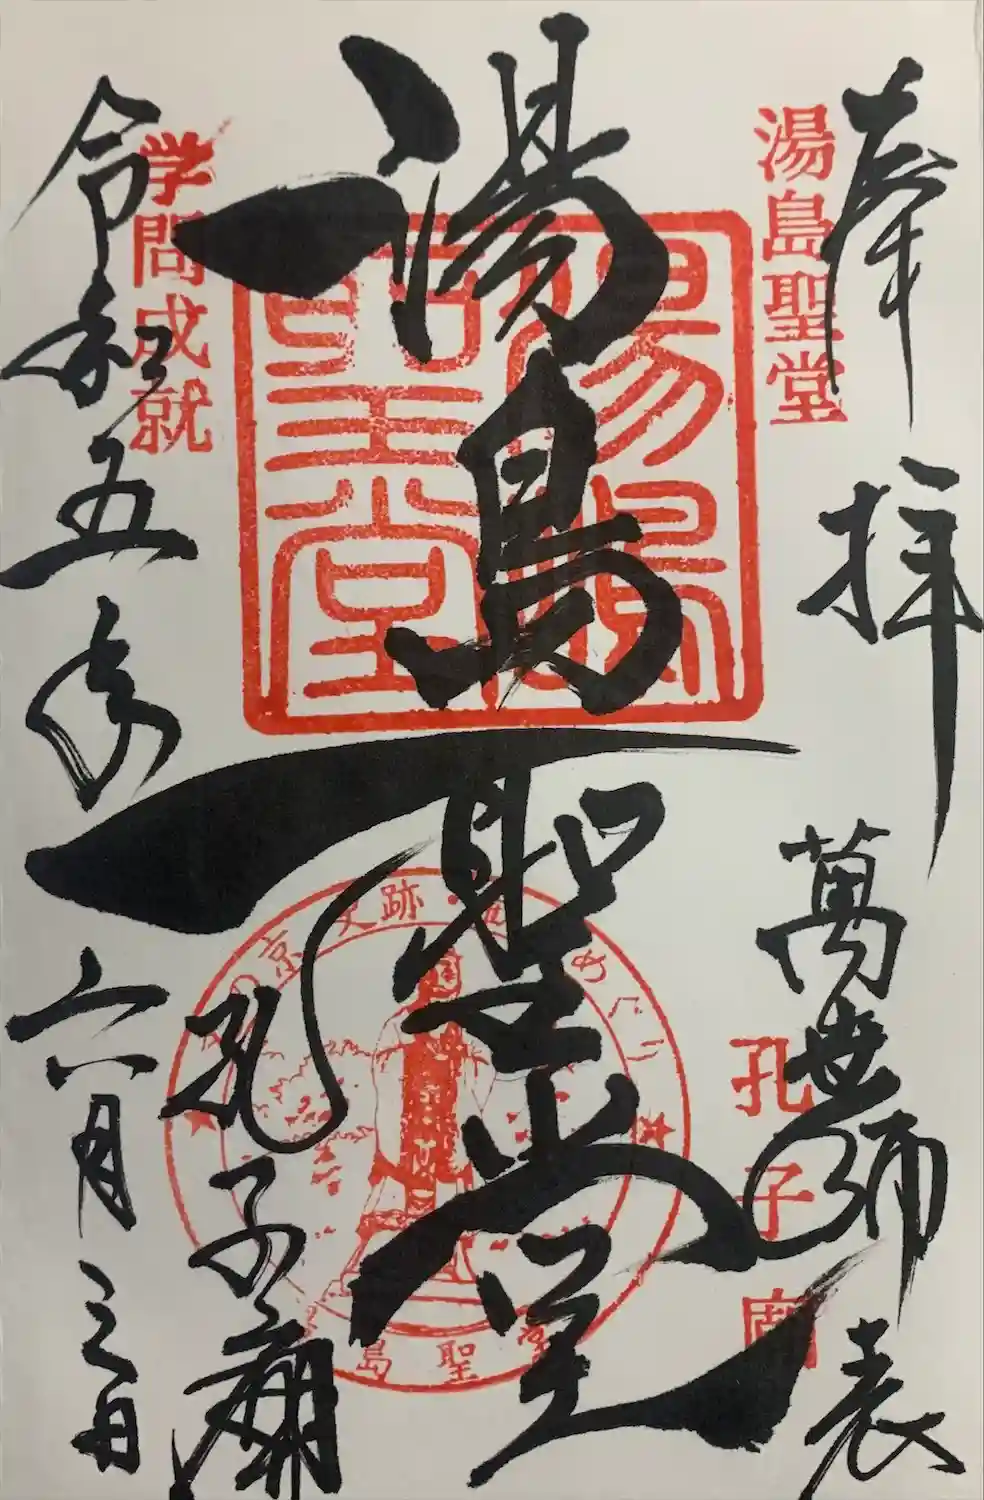 奉拝
湯島聖堂
萬世師表
孔子廟
湯島聖堂
湯島聖堂
孔子廟
史跡
めぐり
島聖堂
学問成就
令和五年六月三日